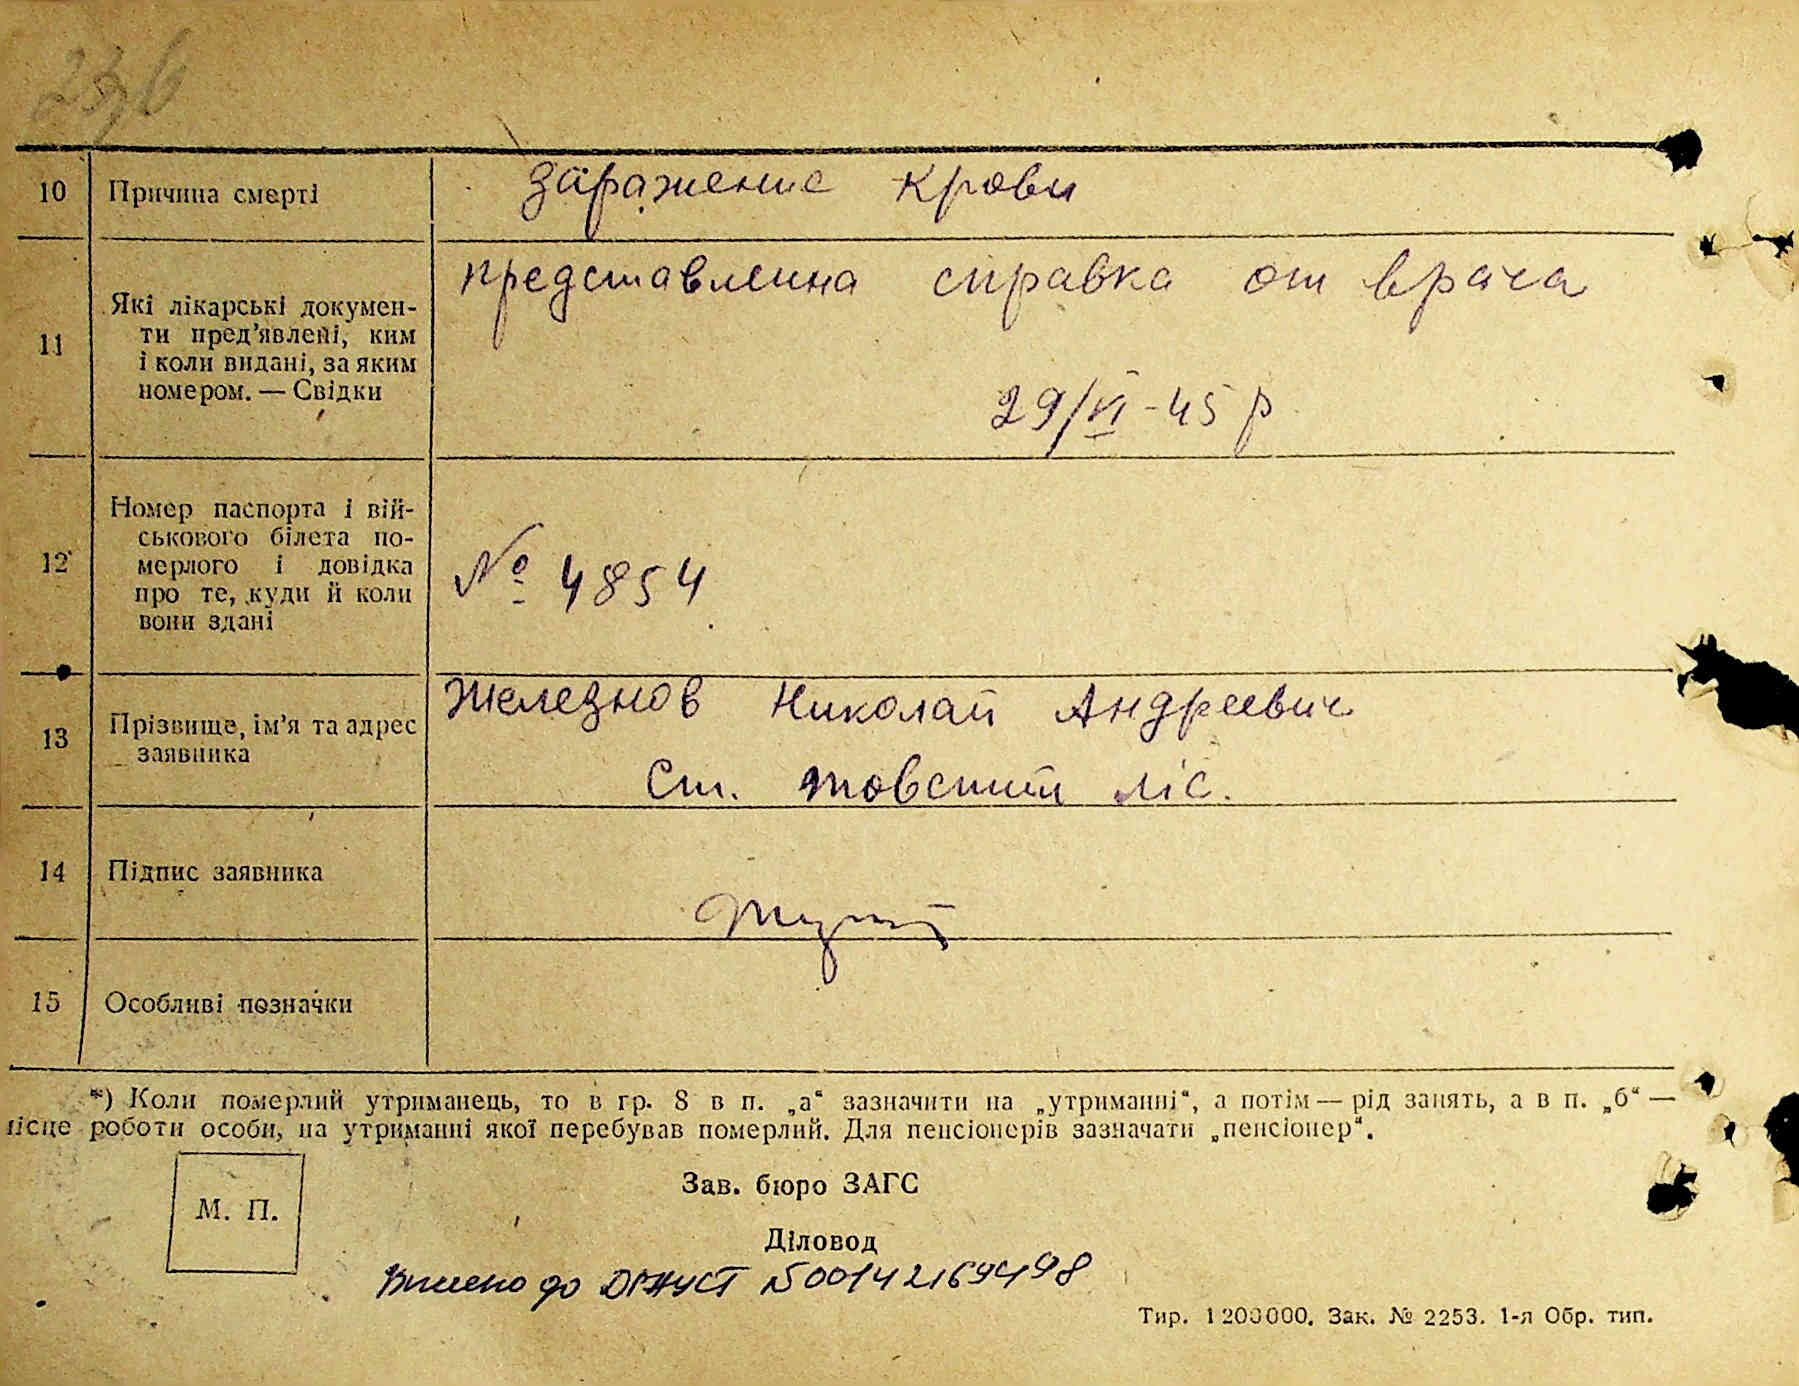 10 Причина смерті заражение крови
11 Які лікарські докумен-
ти пред'явлені, ким
і коли видані, за яким
номером. — Свідки
представленна справка от врача
29/VI-45 р
12 Номер паспорта і вій-
ськового білета по-
мерлого і довідка
про те, куди й коли
вони здані
№ 4854
13 Прізвище, ім'я та адрес
заявника
Железнов Николай Андреевич
ст. товстий ліс.
14 Підпис заявника
15 Особливі позначки
*) Коли померлий утриманець, то в гр. 8 в п. „а“ зазначити на „утриманні“, а потім — рід занять, а в п. „б“ —
місце роботи особи, на утриманні якої перебував померлий. Для пенсіонерів зазначати „пенсіонер“.
М. П.
Зав. бюро ЗАГС
Діловод
Внесено до ДРАЦСГ №00142169498
Тир. 1200000. Зак. № 2253. 1-я Обр. тип.